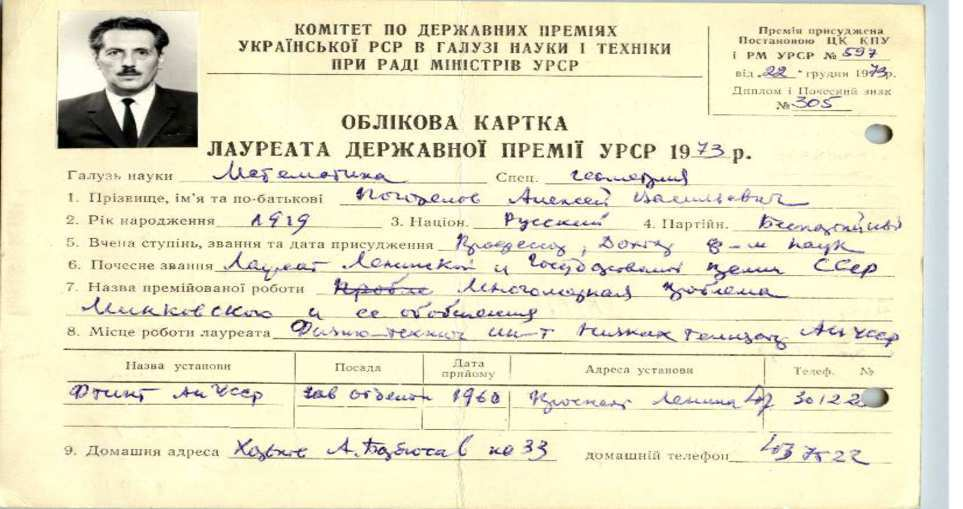 КОМІТЕТ ПО ДЕРЖАВНИХ ПРЕМІЯХ
УКРАЇНСЬКОЇ РСР В ГАЛУЗІ НАУКИ І ТЕХНІКИ
ПРИ РАДІ МІНІСТРІВ УРСР
Премія присуджена
Постановою ЦК КПУ
і РМ УРСР № 597
від „22“ грудня 1973р.
Диплом і Почесний знак
№ 305
ОБЛІКОВА КАРТКА
ЛАУРЕАТА ДЕРЖАВНОЇ ПРЕМІЇ УРСР 1973 р.
Галузь науки Математика Спец. геометрия
1. Прізвище, ім'я та по-батькові Погорелов Алексей Васильевич
2. Рік народження 1919 3. Націон. Русский 4. Партійн. Беспартийный
5. Вчена ступінь, звання та дата присудження Профессор, Доктор ф-м наук
6. Почесне звання Лауреат Ленинской и Государственной премии СССР
7. Назва премійованої роботи Многомерная проблема
Минковского и ее обобщения
8. Місце роботи лауреата Физико-технич ин-т Низких Температур АН УССР
Назва установи Посада Дата прийому Адреса установи Телеф. №
ФТИНТ АН УССР зав отделом 1960 Проспект Ленина 47 30122
9. Домашня адреса Харьков 33 домашній телефон 7522